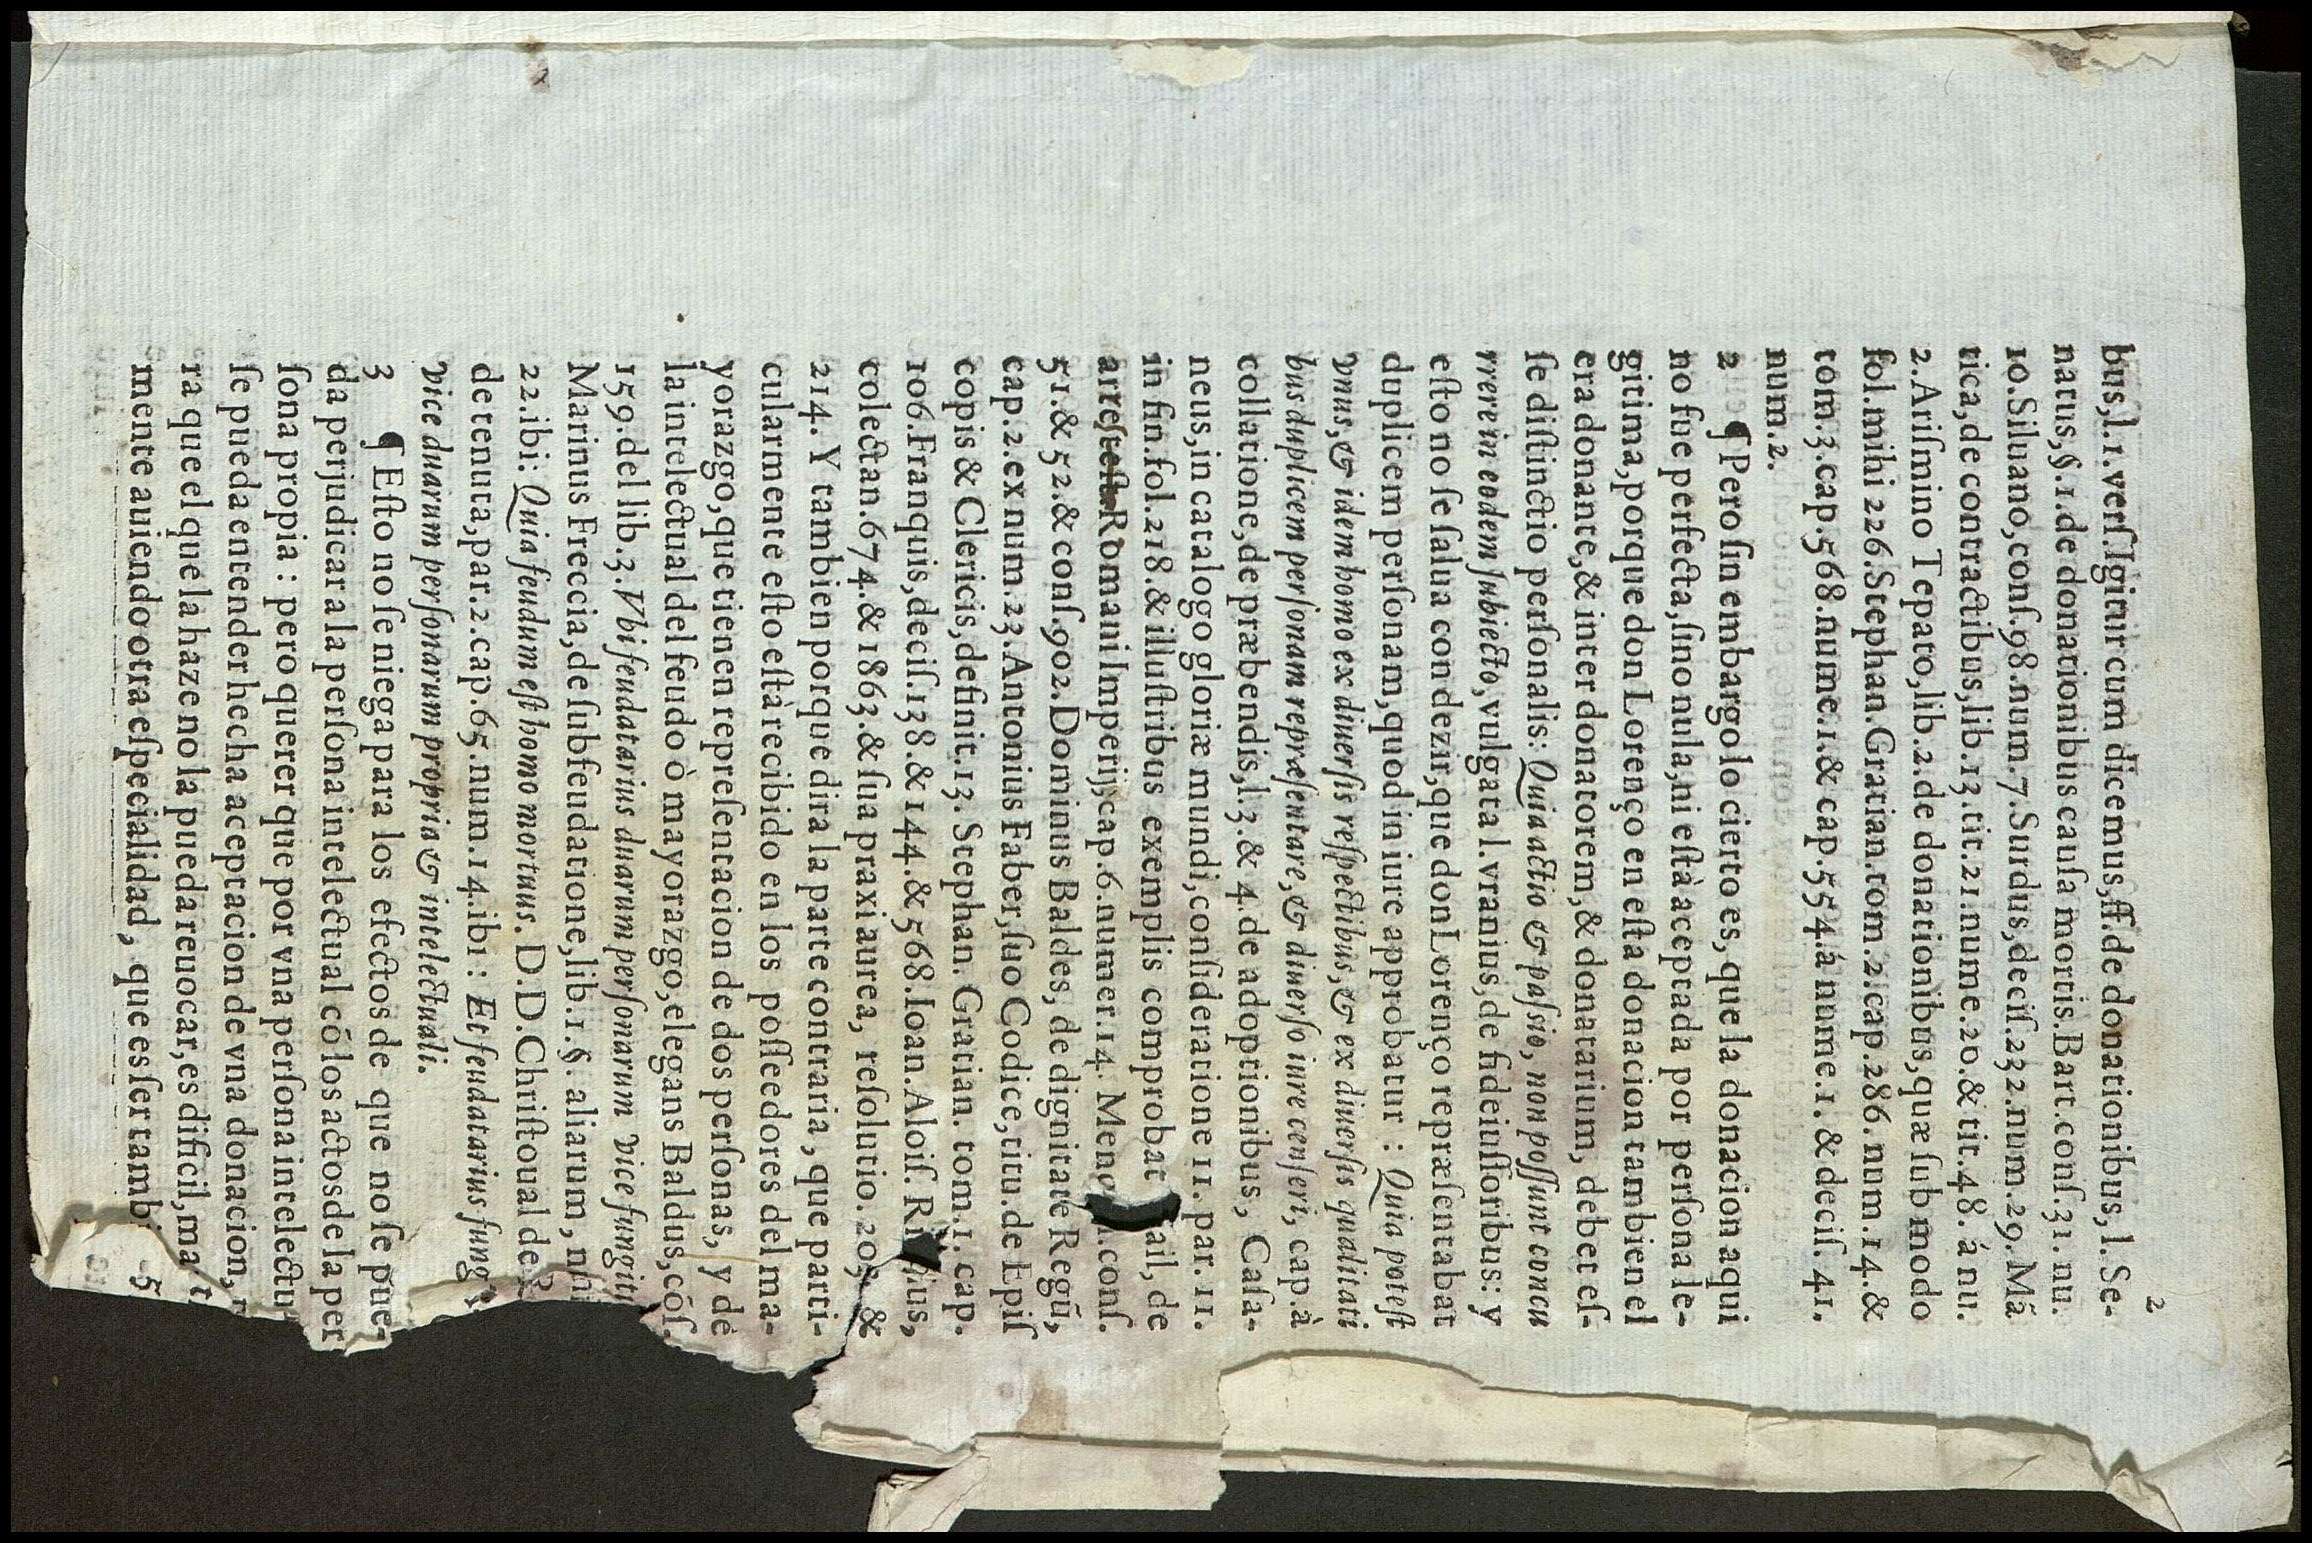 2
bus, l. 1. verſ. Igitur cum dicemus, ff. de donationibus, l. Se-
natus, §. 1. de donationibus cauſa mortis. Bart. conſ. 31. nu.
10. Siluano, conſ. 98. num. 7. Surdus, deciſ. 232. num. 29. Mã
tica, de contractibus, lib. 13. tit. 21. nume. 20. & tit. 48. á nu.
2. Ariſmino Tepato, lib. 2. de donationibus, quæ ſub modo
fol. mihi 226. Stephan. Gratian. tom. 2. cap. 286. num. 14. &
tom. 3. cap. 568. nume. 1. & cap. 554. á nume. 1. & deciſ. 41.
num. 2.
2 ¶ Pero ſin embargo lo cierto es, que la donacion aqui
no fue perfecta, ſino nula, ni eſtà aceptada por perſona le-
gitima, porque don Lorenço en eſta donacion tambien el
era donante, & inter donatorem, & donatarium, debet eſ-
ſe diſtinctio perſonalis: Quia actio & paſsio, non poſſunt concu
rrere in eodem ſubiecto, vulgata l. vranius, de fideiuſſoribus: y
eſto no ſe ſalua con dezir, que don Lorenço repræſentabat
duplicem perſonam, quod in iure approbatur : Quia poteſt
vnus, & idem homo ex diuerſis reſpectibus, & ex diuerſis qualitati
bus duplicem perſonam repræſentare, & diuerſo iure cenſeri, cap. à
collatione, de præbendis, l. 3. & 4. de adoptionibus, Caſa-
neus, in catalogo gloriæ mundi, conſideratione 11. par. 11.
in fin. fol. 218. & illuſtribus exemplis comprobat ail, de
arreſteſta Romani Imperij, cap. 6. numer. 14. Meno conſ.
51. & 52. & conſ. 902. Dominus Baldes, de dignitate Regũ,
cap. 2. ex num. 23. Antonius Faber, ſuo Codice, titu. de Epiſ
copis & Clericis, definit. 13. Stephan. Gratian. tom. 1. cap.
106. Franquis, deciſ. 138. & 144. & 568. Ioan. Aloiſ. Ri ius,
colectan. 674. & 1863. & ſua praxi aurea, reſolutio. 203. &
214. Y tambien porque dira la parte contraria, que parti-
cularmente eſto eſtà recibido en los poſſeedores del ma-
yorazgo, que tienen repreſentacion de dos perſonas, y de
la intelectual del feudo ò mayorazgo, elegans Baldus, cõſ.
159. del lib. 3. Vbi feudatarius duarum perſonarum vice fungit
Marinus Freccia, de ſubfeudatione, lib. 1. §. aliarum,
22. ibi: Quia feudum eſt homo mortuus. D. D. Chriſtoual de
de tenuta, par. 2. cap. 65. num. 14. ibi : Et feudatarius fung
vice duarum perſonarum propria & intelectuali.
3 ¶ Eſto no ſe niega para los efectos de que no ſe pue-
da perjudicar a la perſona intelectual cõ los actos de la per
ſona propia : pero querer que por vna perſona intelectu
ſe pueda entender hecha aceptacion de vna donacion,
ra que el que la haze no la pueda reuocar, es dificil, ma
mente auiendo otra eſpecialidad, que es ſer tambi